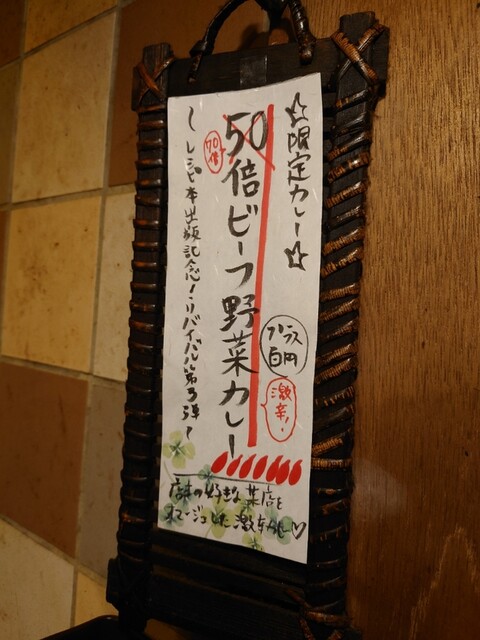 ☆限定カレー☆
50倍ビーフ野菜カレー
70倍
プラス百円
激辛!!
~レシピ本出版記念!リバイバル第3弾~
店主の好きな某店を
オマージュした激辛カレー♡